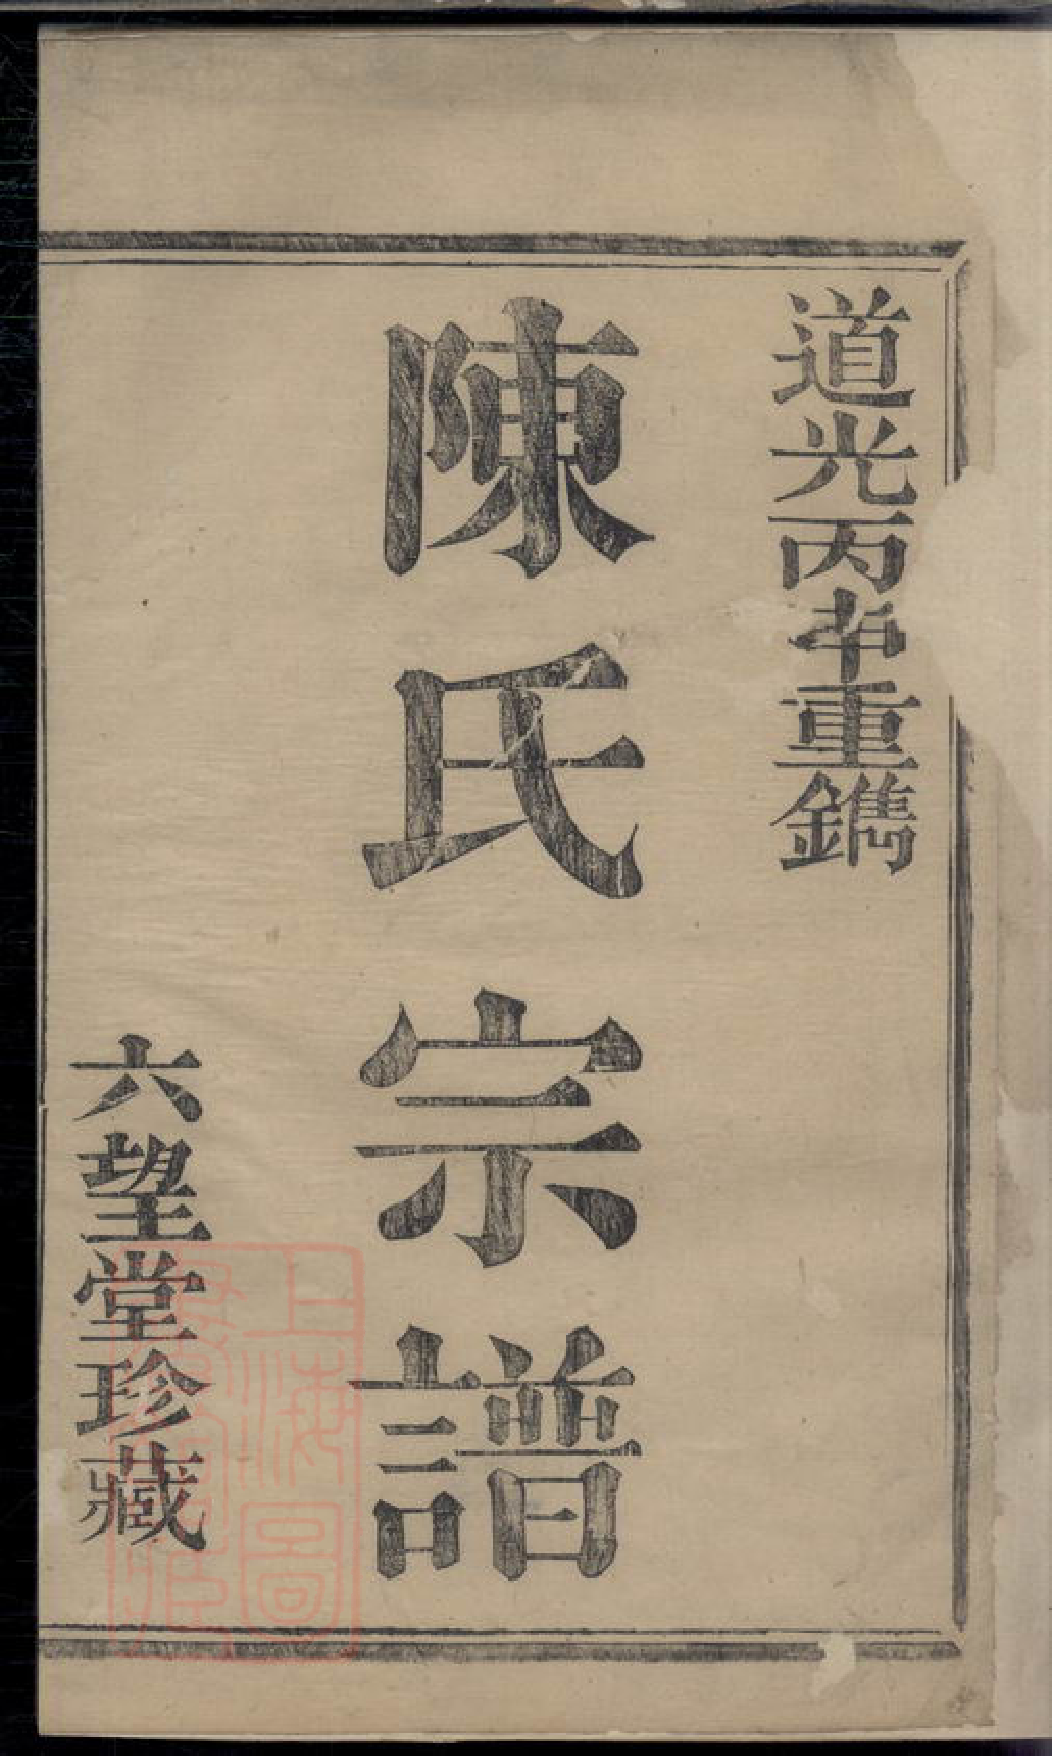 道光丙重鐫
陳氏宗譜
六望堂珍藏
上海圖
書館藏